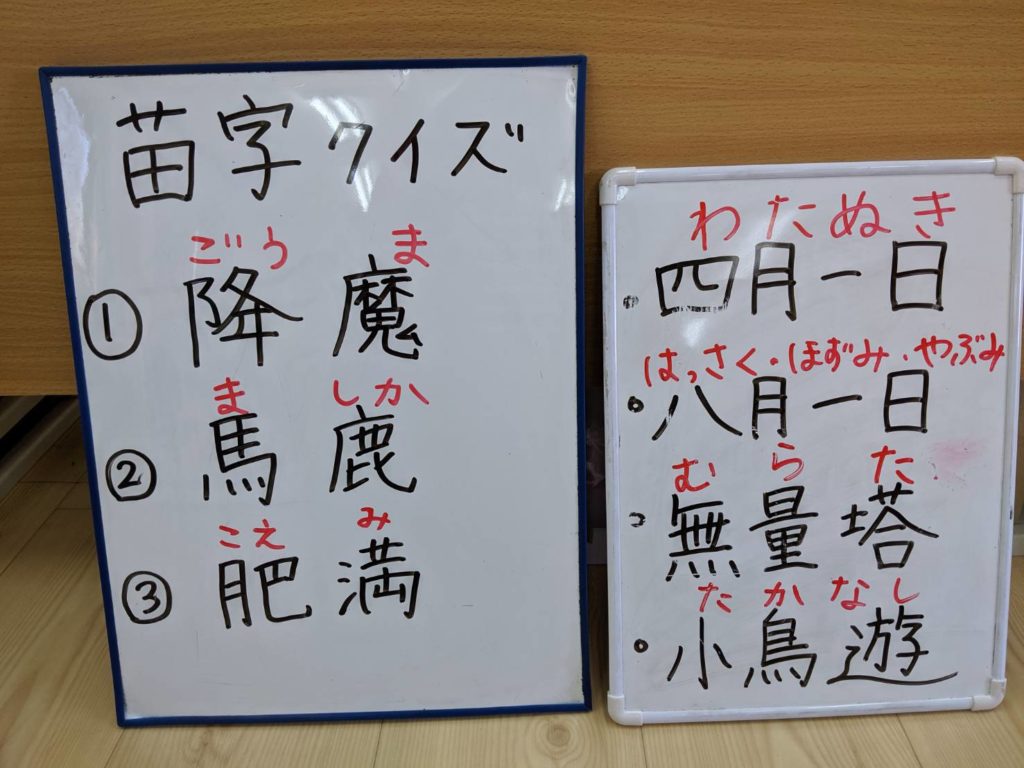 苗字クイズ
ごう ま
① 降魔
ま しか
② 馬鹿
こえ み
③ 肥満
わたぬき
四月一日
はっさく・ほずみ・やぶみ
八月一日
むらた
無量塔
たかなし
小鳥遊